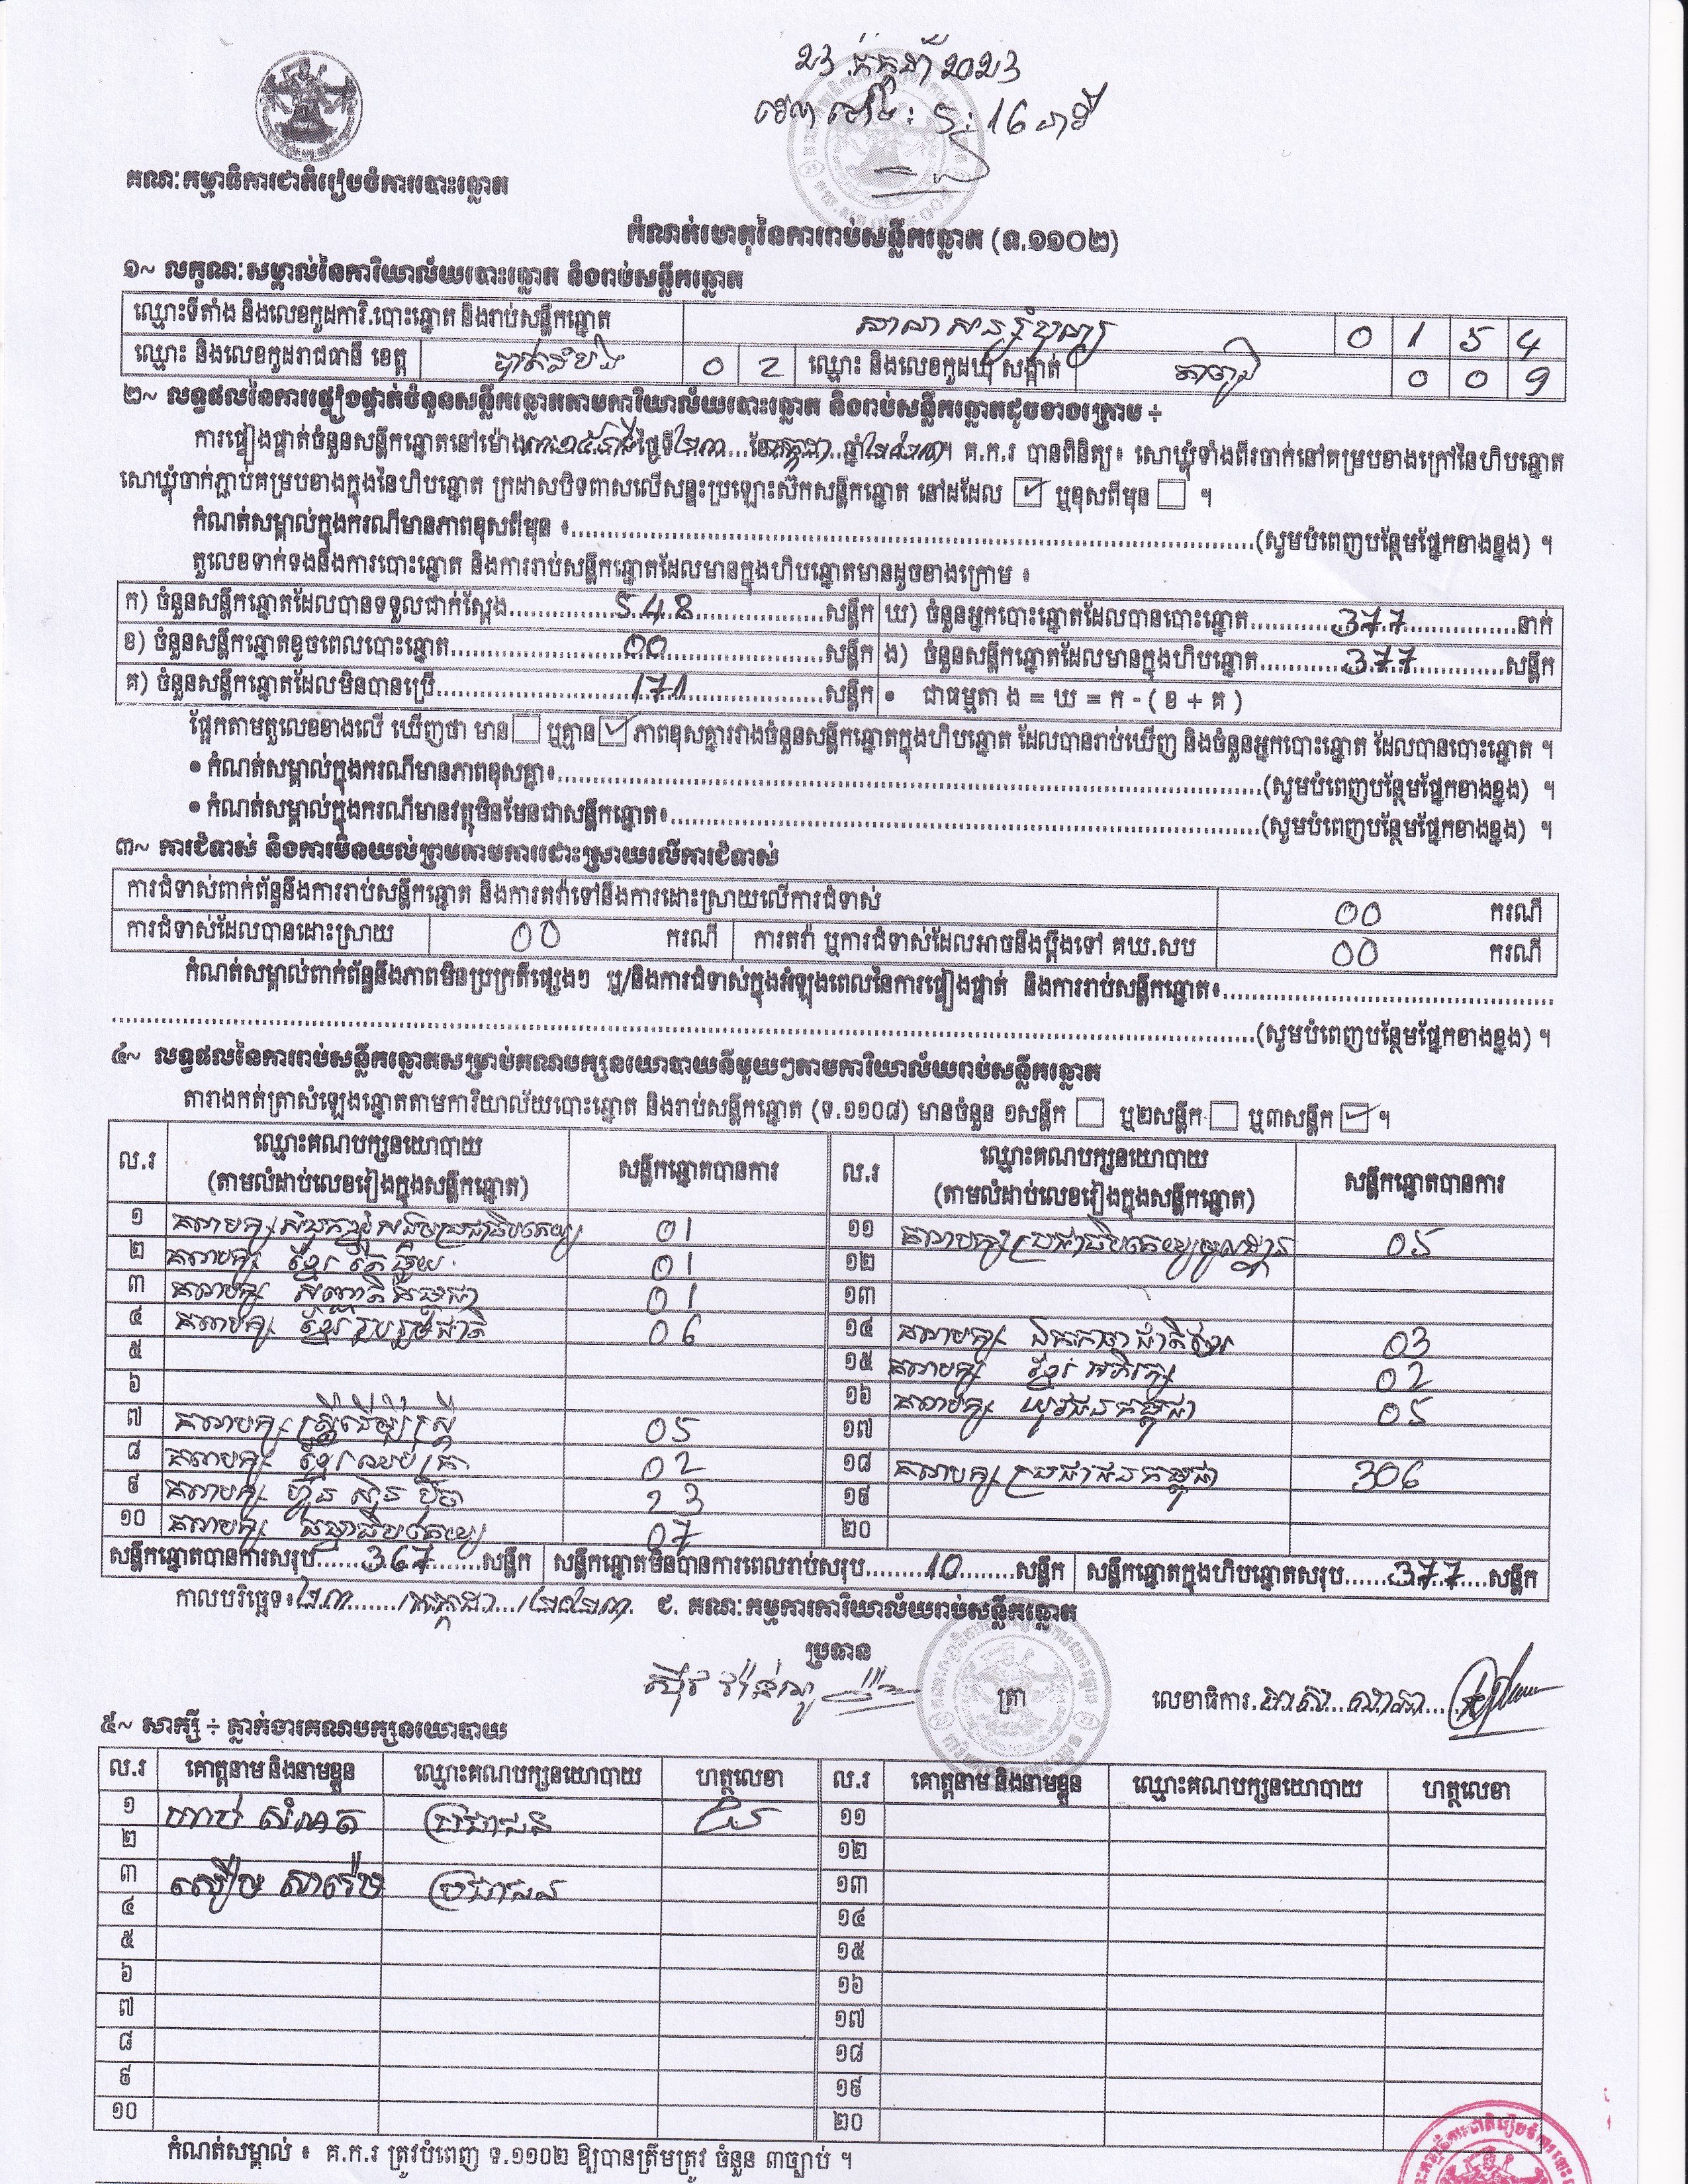 23 កក្កដា 2023
វេលា ម៉ោង: 5:16 នាទី
គណៈកម្មាធិការជាតិរៀបចំការបោះឆ្នោត
កំណត់ហេតុនៃការរាប់សន្លឹកឆ្នោត (ទ.១១០២)
១~ លក្ខណៈសម្គាល់នៃការិយាល័យបោះឆ្នោត និងរាប់សន្លឹកឆ្នោត
ឈ្មោះទីតាំង និងលេខកូដការិ.បោះឆ្នោត និងរាប់សន្លឹកឆ្នោត 0 1 5 4
ឈ្មោះ និងលេខកូដរាជធានី ខេត្ត បាត់ដំបង 0 2 ឈ្មោះ និងលេខកូដឃុំ សង្កាត់ 0 0 9
២~ លទ្ធផលនៃការផ្ទៀងផ្ទាត់ចំនួនសន្លឹកឆ្នោតតាមការិយាល័យបោះឆ្នោត និងរាប់សន្លឹកឆ្នោតដូចខាងក្រោម ÷
ការផ្ទៀងផ្ទាត់ចំនួនសន្លឹកឆ្នោតនៅម៉ោង ៣:១៥នាទី ថ្ងៃទី ២៣ ខែ កក្កដា ឆ្នាំ ២០២៣។ គ.ក.រ បានពិនិត្យ៖ សោឃ្មុំទាំងពីរចាក់នៅគម្របខាងក្រៅនៃហិបឆ្នោត
សោឃ្មុំចាក់ភ្ជាប់គម្របខាងក្នុងនៃហិបឆ្នោត ក្រដាសបិទពាសលើសន្ទះប្រឡោះស៊កសន្លឹកឆ្នោត នៅដដែល ☑ ឬខុសពីមុន ☐ ។
កំណត់សម្គាល់ក្នុងករណីមានភាពខុសពីមុន ៖........(សូមបំពេញបន្ថែមផ្នែកខាងខ្នង) ។
តួលេខទាក់ទងនឹងការបោះឆ្នោត និងការរាប់សន្លឹកឆ្នោតដែលមានក្នុងហិបឆ្នោតមានដូចខាងក្រោម ៖
ក) ចំនួនសន្លឹកឆ្នោតដែលបានទទួលជាក់ស្តែង 548 សន្លឹក ឃ) ចំនួនអ្នកបោះឆ្នោតដែលបានបោះឆ្នោត 377 នាក់
ខ) ចំនួនសន្លឹកឆ្នោតខូចពេលបោះឆ្នោត 00 សន្លឹក ង) ចំនួនសន្លឹកឆ្នោតដែលមានក្នុងហិបឆ្នោត 377 សន្លឹក
គ) ចំនួនសន្លឹកឆ្នោតដែលមិនបានប្រើ 171 សន្លឹក • ជាធម្មតា ង = ឃ = ក - ( ខ + គ )
ផ្អែកតាមតួលេខខាងលើ ឃើញថា មាន ☐ ឬគ្មាន ☑ ភាពខុសគ្នារវាងចំនួនសន្លឹកឆ្នោតក្នុងហិបឆ្នោត ដែលបានរាប់ឃើញ និងចំនួនអ្នកបោះឆ្នោត ដែលបានបោះឆ្នោត ។
• កំណត់សម្គាល់ក្នុងករណីមានភាពខុសគ្នា៖........(សូមបំពេញបន្ថែមផ្នែកខាងខ្នង) ។
• កំណត់សម្គាល់ក្នុងករណីមានវត្ថុមិនមែនជាសន្លឹកឆ្នោត៖........(សូមបំពេញបន្ថែមផ្នែកខាងខ្នង) ។
៣~ ការជំទាស់ និងការមិនយល់ព្រមតាមការដោះស្រាយលើការជំទាស់
ការជំទាស់ពាក់ព័ន្ធនឹងការរាប់សន្លឹកឆ្នោត និងការតវ៉ាទៅនឹងការដោះស្រាយលើការជំទាស់ 00 ករណី
ការជំទាស់ដែលបានដោះស្រាយ 00 ករណី ការតវ៉ា ឬការជំទាស់ដែលអាចនឹងប្តឹងទៅ គឃ.សប 00 ករណី
កំណត់សម្គាល់ពាក់ព័ន្ធនឹងភាពមិនប្រក្រតីផ្សេងៗ ឬ/និងការជំទាស់ក្នុងអំឡុងពេលនៃការផ្ទៀងផ្ទាត់ និងការរាប់សន្លឹកឆ្នោត៖........
........(សូមបំពេញបន្ថែមផ្នែកខាងខ្នង) ។
៤~ លទ្ធផលនៃការរាប់សន្លឹកឆ្នោតសម្រាប់គណបក្សនយោបាយនីមួយៗតាមការិយាល័យរាប់សន្លឹកឆ្នោត
តារាងកត់ត្រាសំឡេងឆ្នោតតាមការិយាល័យបោះឆ្នោត និងរាប់សន្លឹកឆ្នោត (ទ.១១០៨) មានចំនួន ១សន្លឹក ☐ ឬ២សន្លឹក ☐ ឬ៣សន្លឹក ☑ ។
ល.រ ឈ្មោះគណបក្សនយោបាយ (តាមលំដាប់លេខរៀងក្នុងសន្លឹកឆ្នោត) សន្លឹកឆ្នោតបានការ ល.រ ឈ្មោះគណបក្សនយោបាយ (តាមលំដាប់លេខរៀងក្នុងសន្លឹកឆ្នោត) សន្លឹកឆ្នោតបានការ
១ គណបក្ស សំបុកឃ្មុំសង្គមប្រជាធិបតេយ្យ 01 ១១ គណបក្ស ប្រជាធិបតេយ្យមូលដ្ឋាន 05
២ គណបក្ស ខ្មែរតែមួយ 01 ១២
៣ គណបក្ស សញ្ជាតិកម្ពុជា 01 ១៣
៤ គណបក្ស ខ្មែររួបរួមជាតិ 06 ១៤ គណបក្ស ឯកភាពជាតិខ្មែរ 03
៥ ១៥ គណបក្ស ខ្មែរអភិរក្ស 02
៦ ១៦ គណបក្ស យុវជនកម្ពុជា 05
៧ គណបក្ស ស្ត្រីដើម្បីស្ត្រី 05 ១៧
៨ គណបក្ស ខ្មែរឈប់ក្រ 02 ១៨ គណបក្ស ប្រជាជនកម្ពុជា 306
៩ គណបក្ស ហ៊្វុនស៊ិនប៉ិច 23 ១៩
១០ គណបក្ស ធម្មាធិបតេយ្យ 07 ២០
សន្លឹកឆ្នោតបានការសរុប 367 សន្លឹក សន្លឹកឆ្នោតមិនបានការពេលរាប់សរុប 10 សន្លឹក សន្លឹកឆ្នោតក្នុងហិបឆ្នោតសរុប 377 សន្លឹក
កាលបរិច្ឆេទ៖ ២៣ / កក្កដា / ២០២៣ ជ. គណៈកម្មការការិយាល័យរាប់សន្លឹកឆ្នោត
ប្រធាន
ត្រា លេខាធិការ
៥~ សាក្សី ÷ ភ្នាក់ងារគណបក្សនយោបាយ
ល.រ គោត្តនាម និងនាមខ្លួន ឈ្មោះគណបក្សនយោបាយ ហត្ថលេខា ល.រ គោត្តនាម និងនាមខ្លួន ឈ្មោះគណបក្សនយោបាយ ហត្ថលេខា
១ ហាប់ សំណត ប្រជាជន ១១
២ ១២
៣ សឿម សារ៉េម ប្រជាជន ១៣
៤ ១៤
៥ ១៥
៦ ១៦
៧ ១៧
៨ ១៨
៩ ១៩
១០ ២០
កំណត់សម្គាល់ ៖ គ.ក.រ ត្រូវបំពេញ ទ.១១០២ ឱ្យបានត្រឹមត្រូវ ចំនួន ៣ច្បាប់ ។